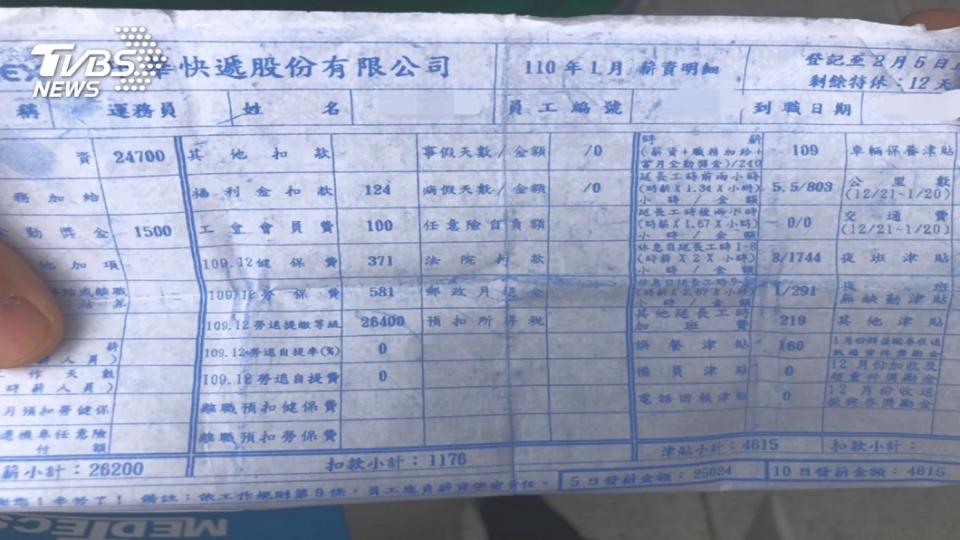 TVBS NEWS
快遞股份有限公司 110年1月 薪資明細 登記至2月5日止
剩餘特休:12天
稱 運務員 姓名 員工編號 到職日期
資 24700 其他扣款 事假天數/金額 /0 時薪 (薪資+職務加給+當月全勤獎金)/240 109 車輛保養津貼
務加給 福利金扣款 124 病假天數/金額 /0 延長工時前兩小時 (時薪X1.34X小時) 小時/金額 5.5/803 公里數 (12/21~1/20)
勤獎金 1500 工會會員費 100 任意險自負額 延長工時後兩小時 (時薪X1.67X小時) 小時/金額 0/0 交通費 (12/21~1/20)
他加項 109.12健保費 371 法院扣款 休息日延長工時1-8 (時薪X2X小時) 小時/金額 8/1744 夜班津貼
109.12勞保費 581 郵政月退金 小時/金額 1/291 夜班無缺勤津貼
109.12勞退提繳等級 26400 預扣所得稅 其他延長工時加班費 219 其他津貼
薪 109.12勞退自提率(%) 0 誤餐津貼 160
人員) 109.12勞退自提費 0 備員津貼 0 12月份加收及超重件獎勵金
時薪人員) 離職預扣健保費 電話回報津貼 0 12月份收送振興券獎勵金
月預扣勞健保 離職預扣勞保費
機車任意險付額
薪小計:26200 扣款小計:1176 津貼小計:4615 扣款小計:
辛苦了! 備註:依工作規則第9條,員工應負薪資保密責任。 5日發薪金額:25024 10日發薪金額:4615
MEDTECS